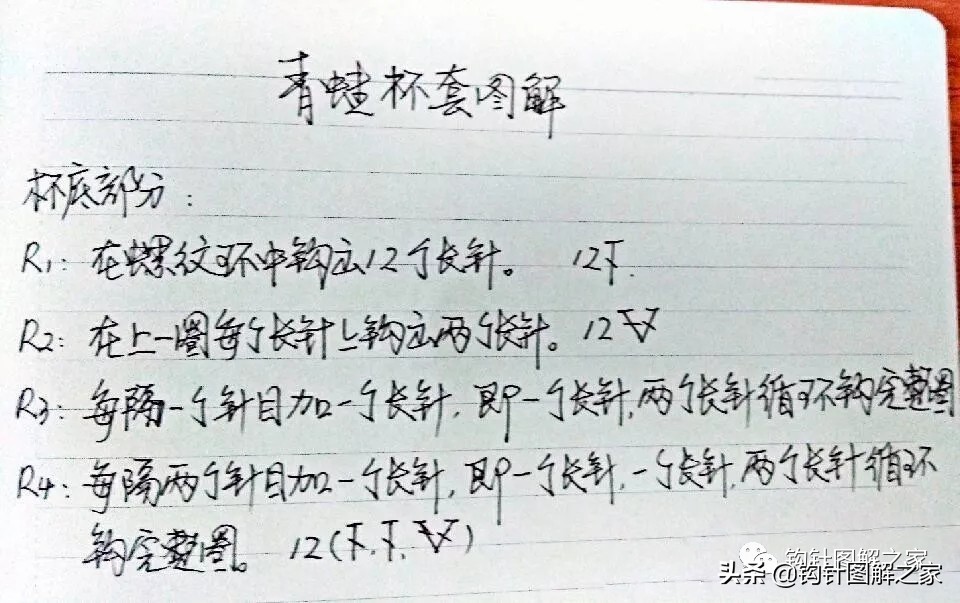 青蛙杯套图解
杯底部分：
R1：在螺纹环中钩出12个长针。 12T.
R2：在上一圈每个长针上钩出两个长针。12V
R3：每隔一个针目加一个长针，即一个长针，两个长针循环钩完整圈
R4：每隔两个针目加一个长针，即一个长针，一个长针，两个长针循环
钩完整圈。 12(T.T.V)
钩针图解之家
头条 @钩针图解之家